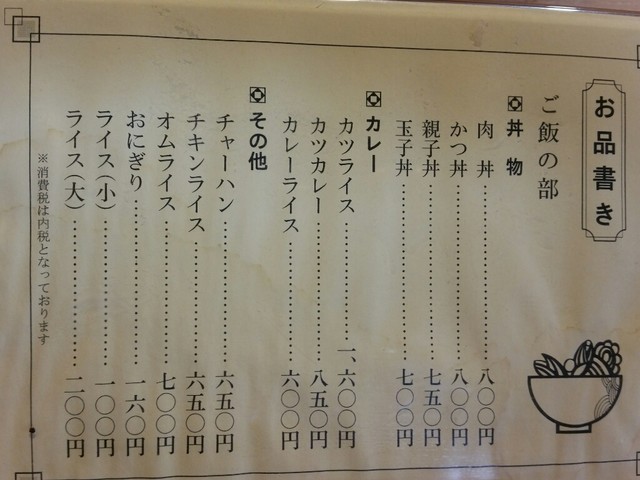 お品書き
ご飯の部
丼物
肉丼……………………八〇〇円
かつ丼……………………八〇〇円
親子丼……………………七五〇円
玉子丼……………………七〇〇円
カレー
カツライス……………………一、六〇〇円
カツカレー……………………八五〇円
カレーライス……………………六〇〇円
その他
チャーハン……………………六五〇円
チキンライス……………………六五〇円
オムライス……………………七〇〇円
おにぎり……………………一六〇円
ライス（小）……………………一〇〇円
ライス（大）……………………二〇〇円
※消費税は内税となっております